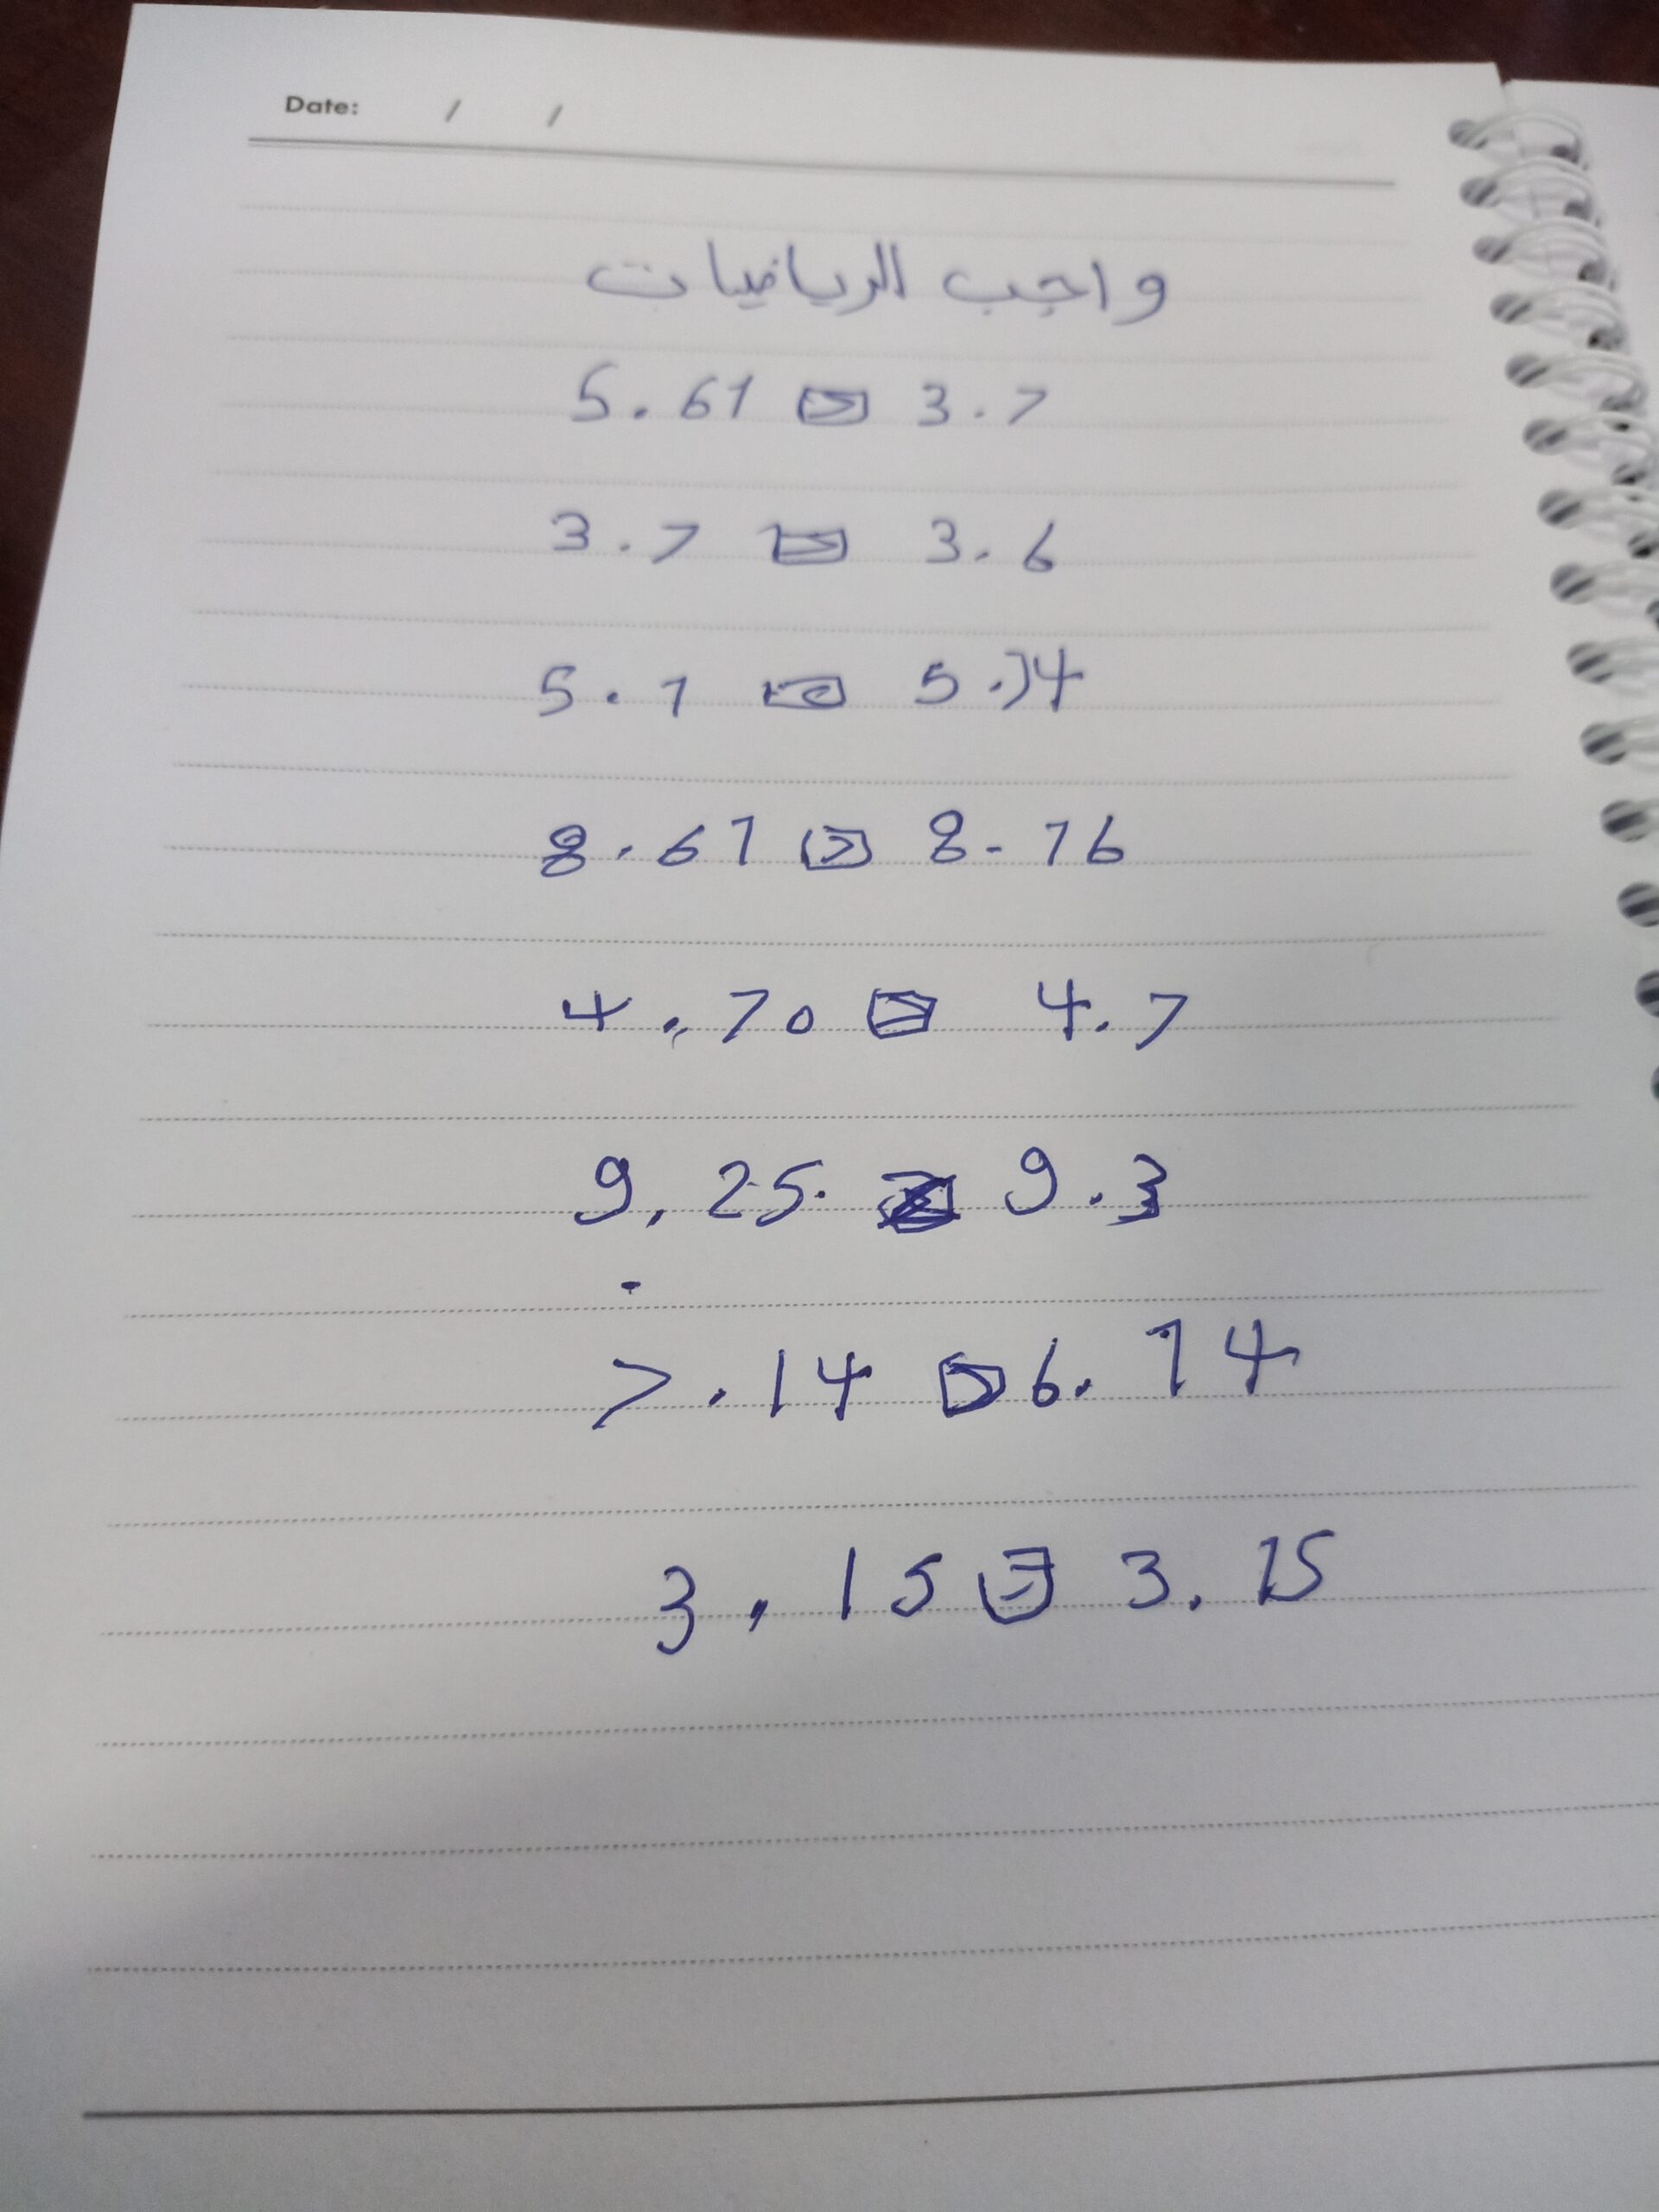 Date: / /
واجب الرياضيات
5.61 > 3.7
3.7 > 3.6
5.1 < 5.14
8.61 > 8.16
4.70 = 4.7
9.25 9.3
7.14 > 6.14
3.15 = 3.15